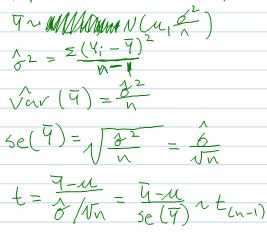 ȳ ~ N(μ, σ²/n)
σ̂² = Σ(Yᵢ - ȳ)²/n-1
v̂ar(ȳ) = σ̂²/n
se(ȳ) = √(σ̂²/n) = σ̂/√n
t = ȳ-μ/σ̂/√n = ȳ-μ/se(ȳ) ~ t₍ₙ₋₁₎